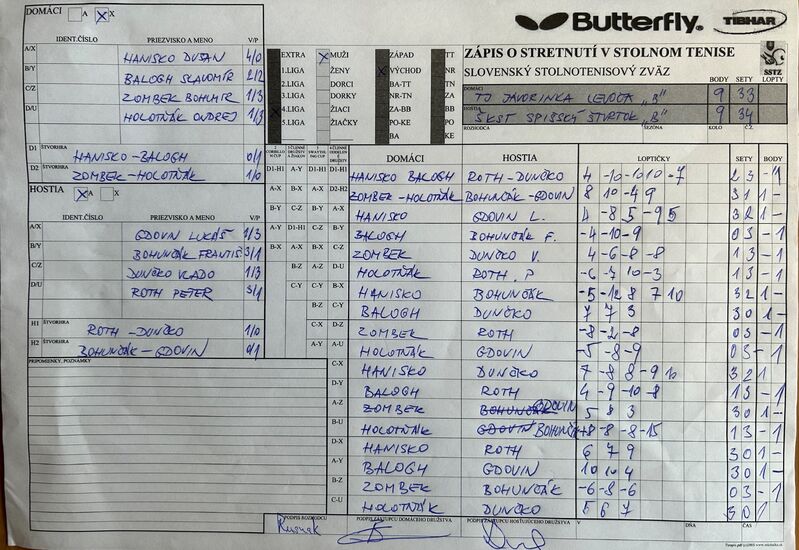 DOMÁCI A X
Butterfly. TIBHAR
IDENT.ČÍSLO PRIEZVISKO A MENO V/P
A/X HANISKO DUŠAN 4/0
B/Y BALOGH SLAVOMÍR 2/2
C/Z ZOMBEK BOHUMÍR 1/3
D/U HOLOTŇÁK ONDREJ 1/3
D1 ŠTVORHRA HANISKO-BALOGH 0/1
D2 ŠTVORHRA ZOMBEK-HOLOTŇÁK 1/0
HOSTIA A X
IDENT.ČÍSLO PRIEZVISKO A MENO V/P
A/X GDOVIN LUKÁŠ 1/3
B/Y BOHUNČÁK FRANTIŠ 3/1
C/Z DUNČKO VLADO 1/3
D/U ROTH PETER 3/1
H1 ŠTVORHRA ROTH-DUNČKO 1/0
H2 ŠTVORHRA BOHUNČÁK-GDOVIN 0/1
PRIPOMIENKY, POZNÁMKY
EXTRA X MUŽI ZÁPAD TT
1.LIGA ŽENY X VÝCHOD NR
2.LIGA DORCI BA-TT TN
3.LIGA DORKY NR-TN ZA
4.LIGA ŽIACI ZA-BB BB
5.LIGA ŽIAČKY PO-KE PO
BA KE
ZÁPIS O STRETNUTÍ V STOLNOM TENISE
SLOVENSKÝ STOLNOTENISOVÝ ZVÄZ SSTZ
BODY SETY LOPTY
DOMÁCI TJ JAVORINKA LEVOČA "B" 9 33
HOSTIA ŠKST SPIŠSKÝ ŠTVRTOK "B" 9 34
ROZHODCA SEZÓNA KOLO Č.Z.
DOMÁCI HOSTIA LOPTIČKY SETY BODY
D1-H1 HANISKO BALOGH ROTH-DUNČKO 4 -10 -10 10 -7 2 3 -1
D2-H2 ZOMBEK-HOLOTŇÁK BOHUNČÁK-GDOVIN 8 10 -4 9 3 1 1 -
A-X HANISKO GDOVIN L. 4 -8 5 -9 5 3 2 1 -
B-Y BALOGH BOHUNČÁK F. -4 -10 -9 0 3 -1
C-Z ZOMBEK DUNČKO V. 4 -6 -8 -8 1 3 -1
D-U HOLOTŇÁK ROTH. P -6 -7 10 -3 1 3 -1
B-X HANISKO BOHUNČÁK -5 -12 8 7 10 3 2 1 -
C-Y BALOGH DUNČKO 7 7 3 3 0 1 -
D-Z ZOMBEK ROTH -8 -2 -8 0 3 -1
A-U HOLOTŇÁK GDOVIN -5 -8 -9 0 3 -1
C-X HANISKO DUNČKO 7 -8 8 -9 10 3 2 1
D-Y BALOGH ROTH 4 -9 -10 -8 1 3 -1
A-Z ZOMBEK GDOVIN 5 8 3 3 0 1 -
B-U HOLOTŇÁK BOHUNČÁK +8 -8 -8 -15 1 3 -1
D-X HANISKO ROTH 6 7 9 3 0 1 -
A-Y BALOGH GDOVIN 10 10 4 3 0 1 -
B-Z ZOMBEK BOHUNČÁK -6 -8 -6 0 3 -1
C-U HOLOTŇÁK DUNČKO 5 6 7 3 0 1
PODPIS ROZHODCU PODPIS ZÁSTUPCU DOMÁCEHO DRUŽSTVA PODPIS ZÁSTUPCU HOSŤUJÚCEHO DRUŽSTVA V DŇA ČAS
Rusnák